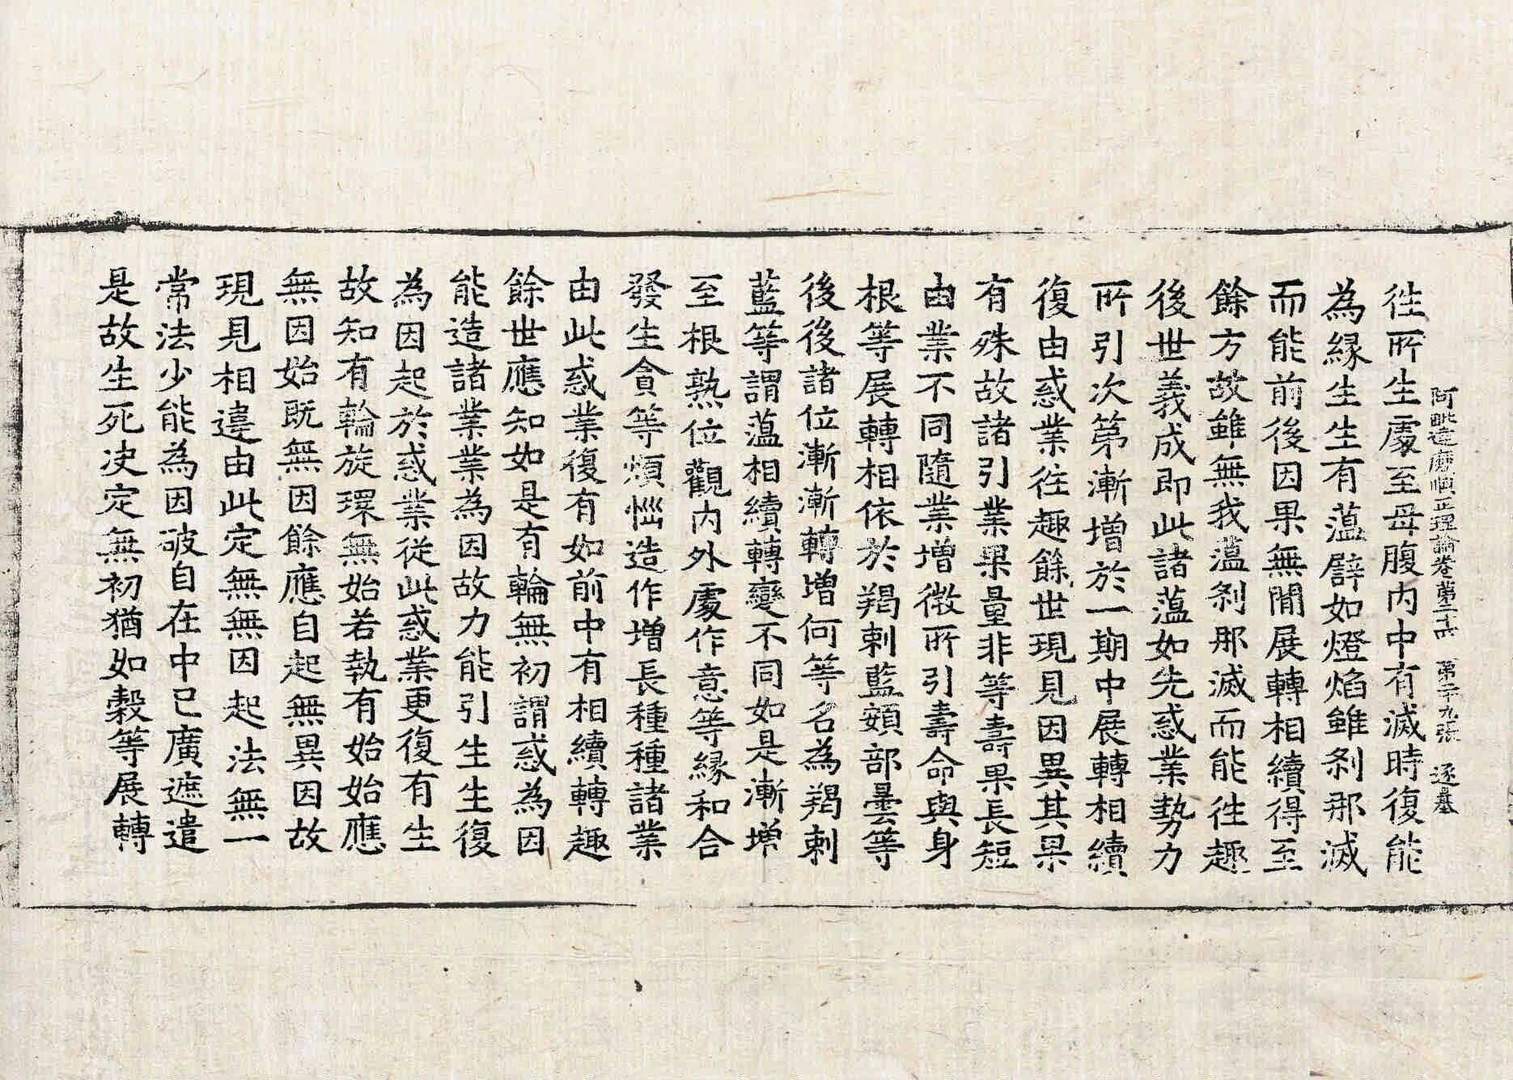 阿毗達磨順正理論卷第二十六　第二十九張　逐
徃所生處至母腹内中有滅時復能
為緣生生有薀譬如燈焰雖刹那滅
而能前後因果無閒展轉相續得至
餘方故雖無我薀刹那滅而能徃趣
後世義成即此諸薀如先惑業勢力
所引次第漸增於一期中展轉相續
復由惑業徃趣餘世現見因異其果
有殊故諸引業果量非等壽果長短
由業不同隨業增微所引壽命與身
根等展轉相依於羯剌藍頞部曇等
後後諸位漸漸轉增何等名為羯剌
藍等謂薀相續轉變不同如是漸增
至根熟位觀内外處作意等緣和合
發生貪等煩惱造作增長種種諸業
由此惑業復有如前中有相續轉趣
餘世應知如是有輪無初謂惑為因
能造諸業業為因故力能引生生復
為因起於惑業從此惑業更復有生
故知有輪旋環無始若執有始始應
無因始旣無因餘應自起無異因故
現見相違由此定無無因起法無一
常法少能為因破自在中已廣遮遣
是故生死決定無初猶如穀等展轉